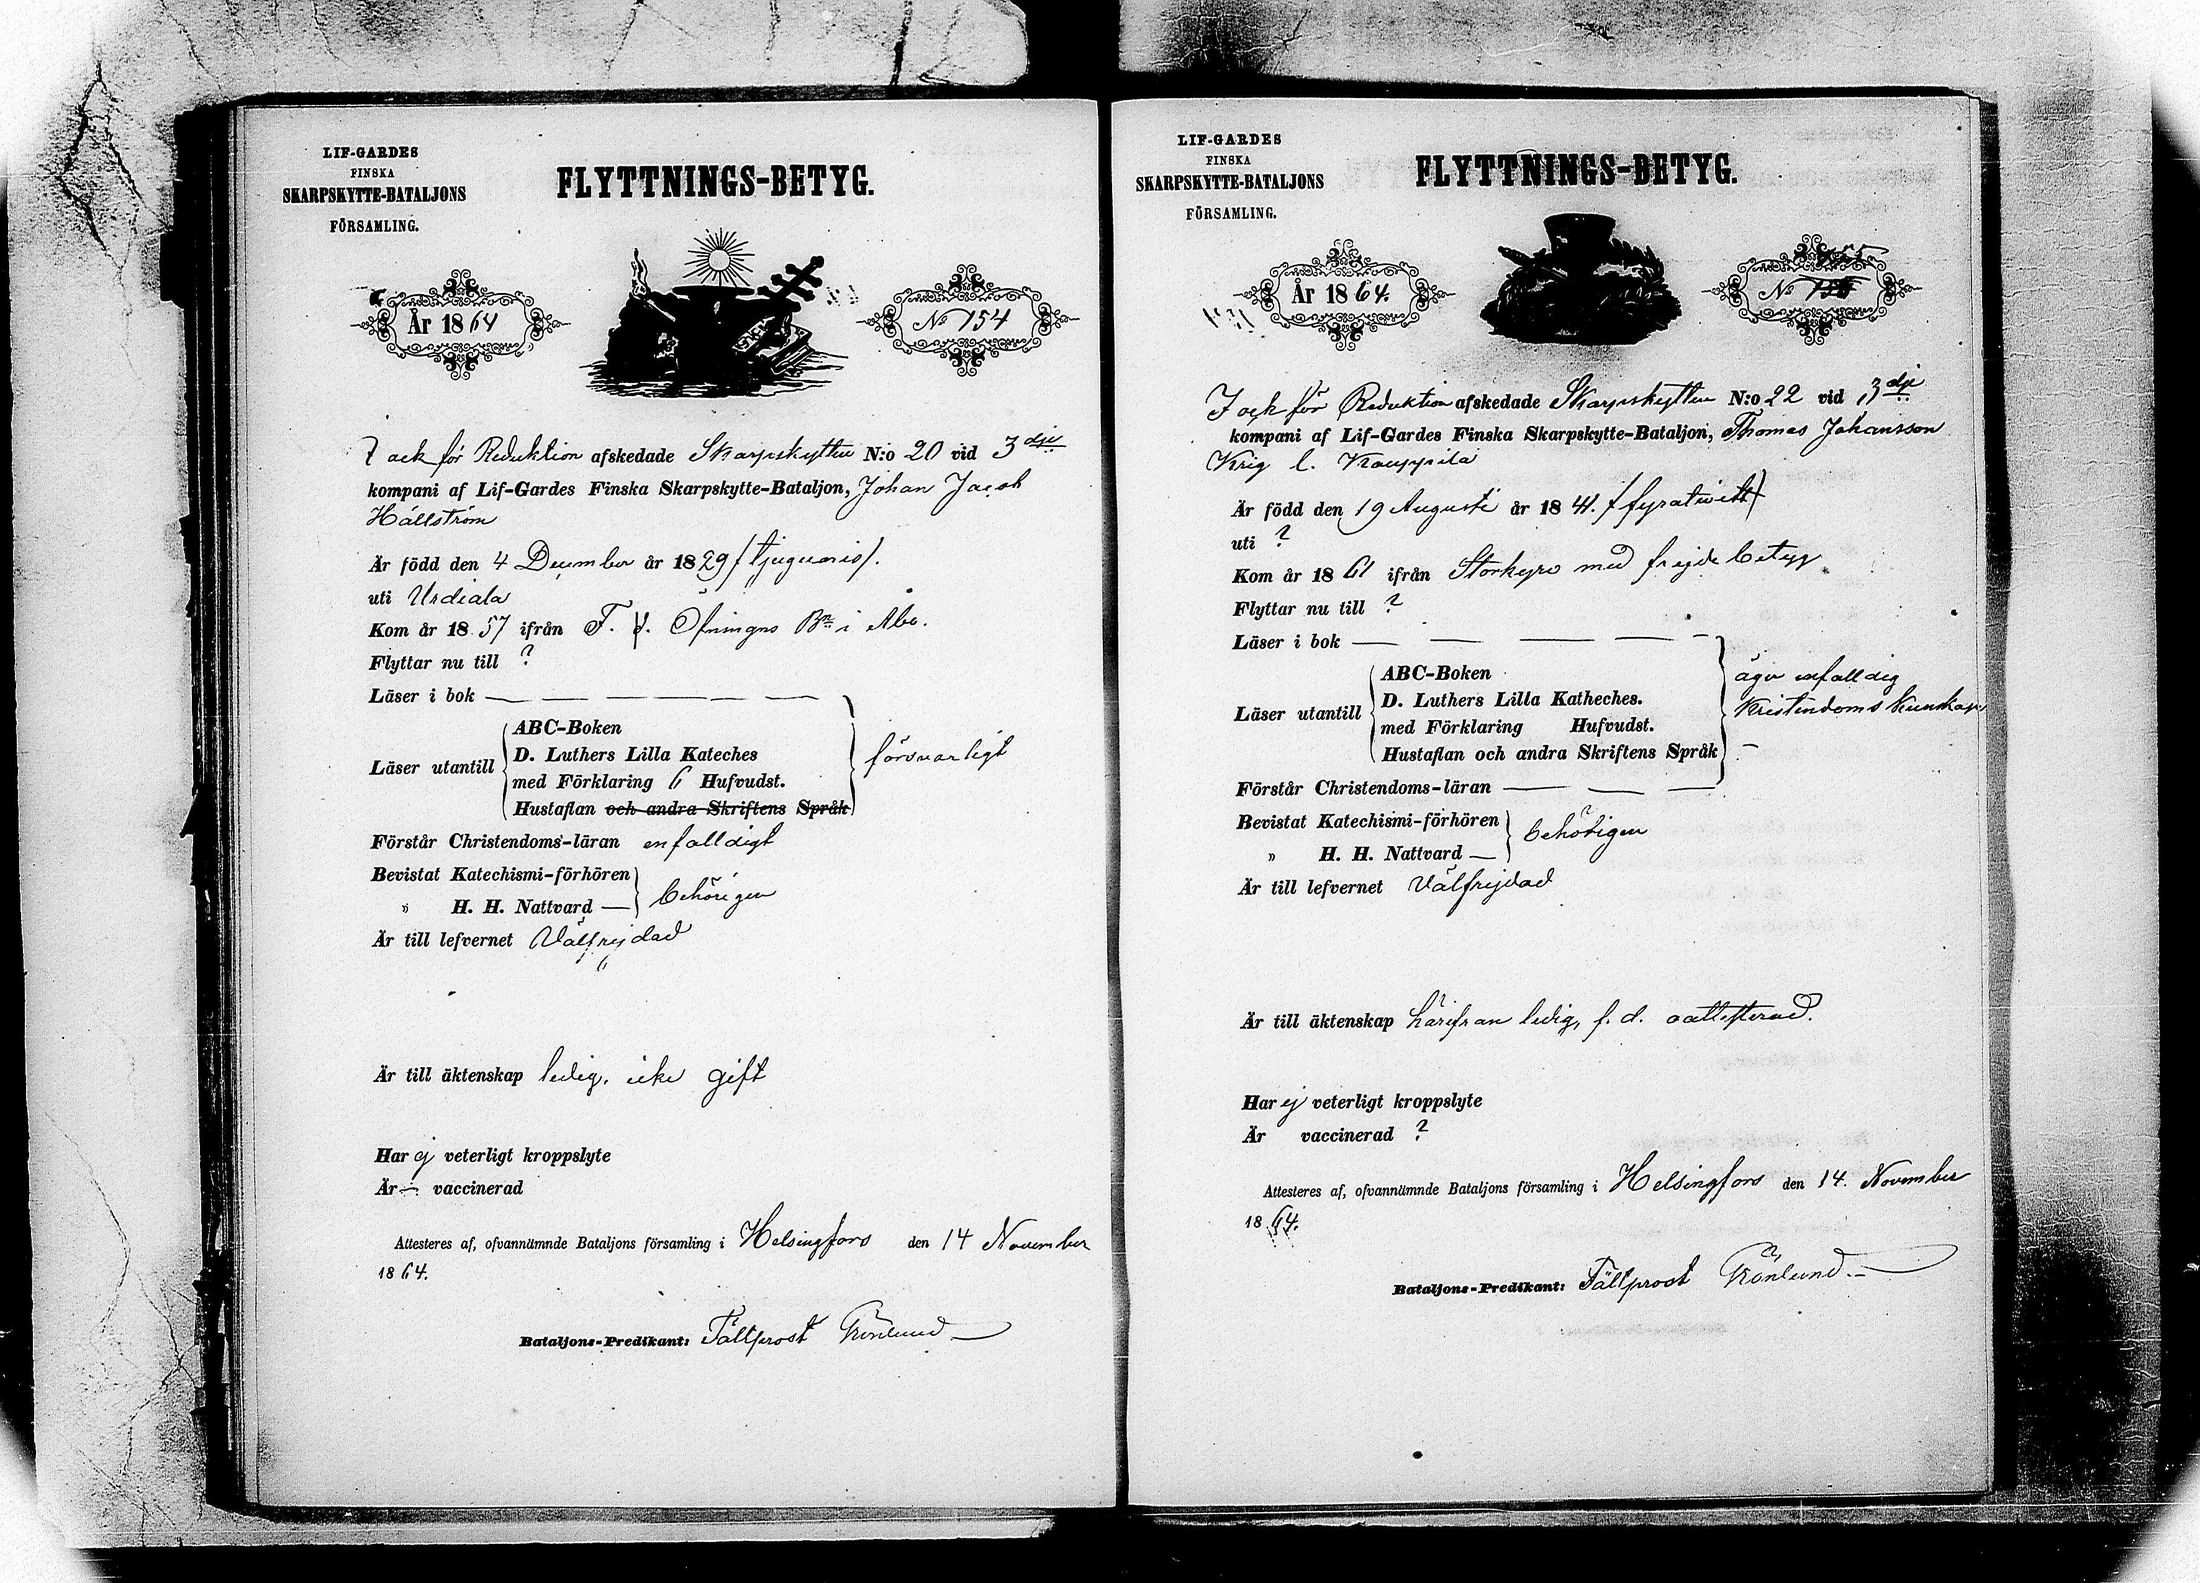 LIF-GARDES
FINSKA
SKARPSKYTTE-BATALJONS
FÖRSAMLING.
FLYTTNINGS-BETYG.
År 1864
No 154
F ack för Reduktion afskedade Skarpskytten N:o 20 vid 3dje
kompani af Lif-Gardes Finska Skarpskytte-Bataljon, Johan Jacob
Hällström
Är född den 4 December år 1829 (tjugunio).
uti Urdiala
Kom år 1857 ifrån F. d. Öfnings Bn i Åbo.
Flyttar nu till ?
Läser i bok — — — — — —
Läser utantill
ABC-Boken
D. Luthers Lilla Kateches
med Förklaring 6 Hufvudst.
Hustaflan och andra Skriftens Språk
försvarligt
Förstår Christendoms-läran enfalldigt
Bevistat Katechismi-förhören
„ H. H. Nattvard —
behörigen
Är till lefvernet Välfrejdad
Är till äktenskap ledig, icke gift
Har ej veterligt kroppslyte
Är — vaccinerad
Attesteres af, ofvannämnde Bataljons församling i Helsingfors den 14 November
1864.
Bataljons-Predikant: Fältprost Grönlund
LIF-GARDES
FINSKA
SKARPSKYTTE-BATALJONS
FÖRSAMLING.
FLYTTNINGS-BETYG.
År 1864.
No 155
F ack för Reduktion afskedade Skarpskytten N:o 22 vid 3dje
kompani af Lif-Gardes Finska Skarpskytte-Bataljon, Thomas Johansson
Krig l. Kauppila
Är född den 19 Augusti år 1841. (fyratiett)
uti ?
Kom år 1861 ifrån Storkyro med frejdebetyg
Flyttar nu till ?
Läser i bok — — — — —
Läser utantill
ABC-Boken
D. Luthers Lilla Katheches.
med Förklaring Hufvudst.
Hustaflan och andra Skriftens Språk —
äger enfalldig
Kristendoms kunskap
Förstår Christendoms-läran — — —
Bevistat Katechismi-förhören
„ H. H. Nattvard —
behörigen
Är till lefvernet Välfrejdad
Är till äktenskap härifrån ledig, f. d.
Har ej veterligt kroppslyte
Är vaccinerad ?
Attesteres af, ofvannämnde Bataljons församling i Helsingfors den 14. November
1864.
Bataljons-Predikant: Fältprost Grönlund